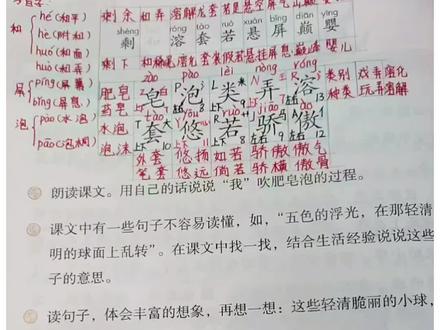 hé(和平) 剩余 和弄 溶解 龙套 若是 悬空 屏气 山巅 婴
和 hè(附和) shèng róng tào ruò xuán bǐng diān yīng
huó(和面) 剩 溶 套 若 悬 屏 巅 婴
huò(和弄) 剩下 套装 假若 悬挂 屏息 婴儿
屏 píng(屏幕) zào pào lèi nòng róng
bǐng(屏息) 肥皂 皂 泡 类 弄 溶 类别 戏弄 溶化
药皂 种类 玩弄 溶解
泡 pāo(水泡) 水泡 套 悠 若 骄 傲
pào(泡桐) 泡沫
外套 悠扬 如若 骄傲 傲气
笔套 悠远 倘若 骄横 傲骨
朗读课文。用自己的话说说“我”吹肥皂泡的过程。
课文中有一些句子不容易读懂,如,“五色的浮光,在那轻清
明的球面上乱转”。在课文中找一找,结合生活经验说说这些
子的意思。
读句子,体会丰富的想象,再想一想:这些轻清脆丽的小球,